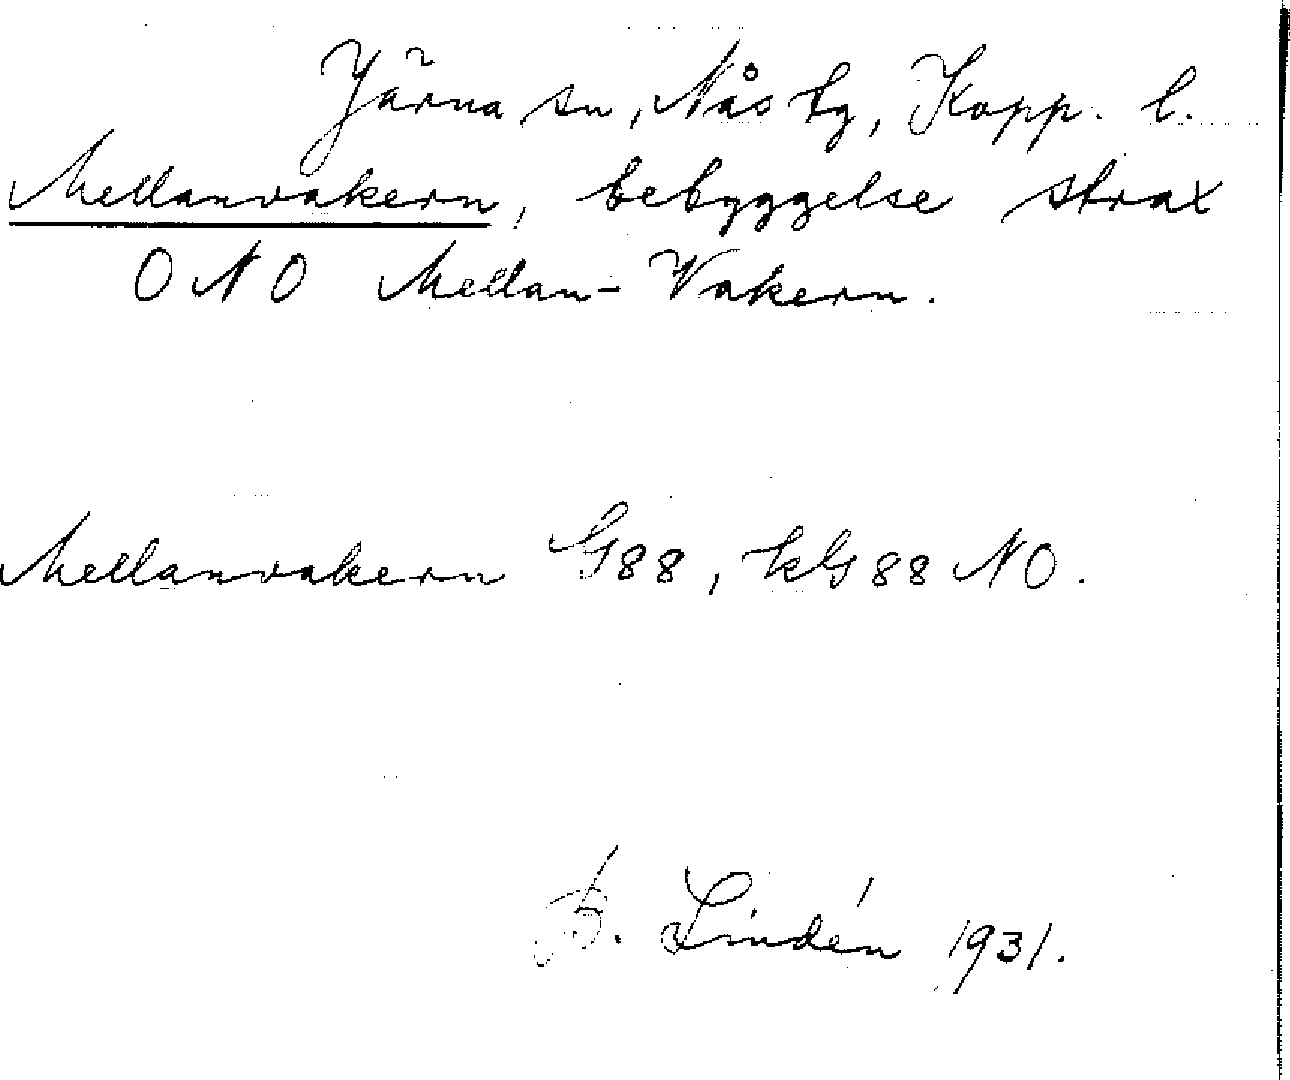 Järna sn, Nås tg, Kopp. l.
Mellanvakern, bebyggelse strax
ONO Mellan-Vakern.
Mellanvakern G88, kG88 NO.
B. Lindén 1931.